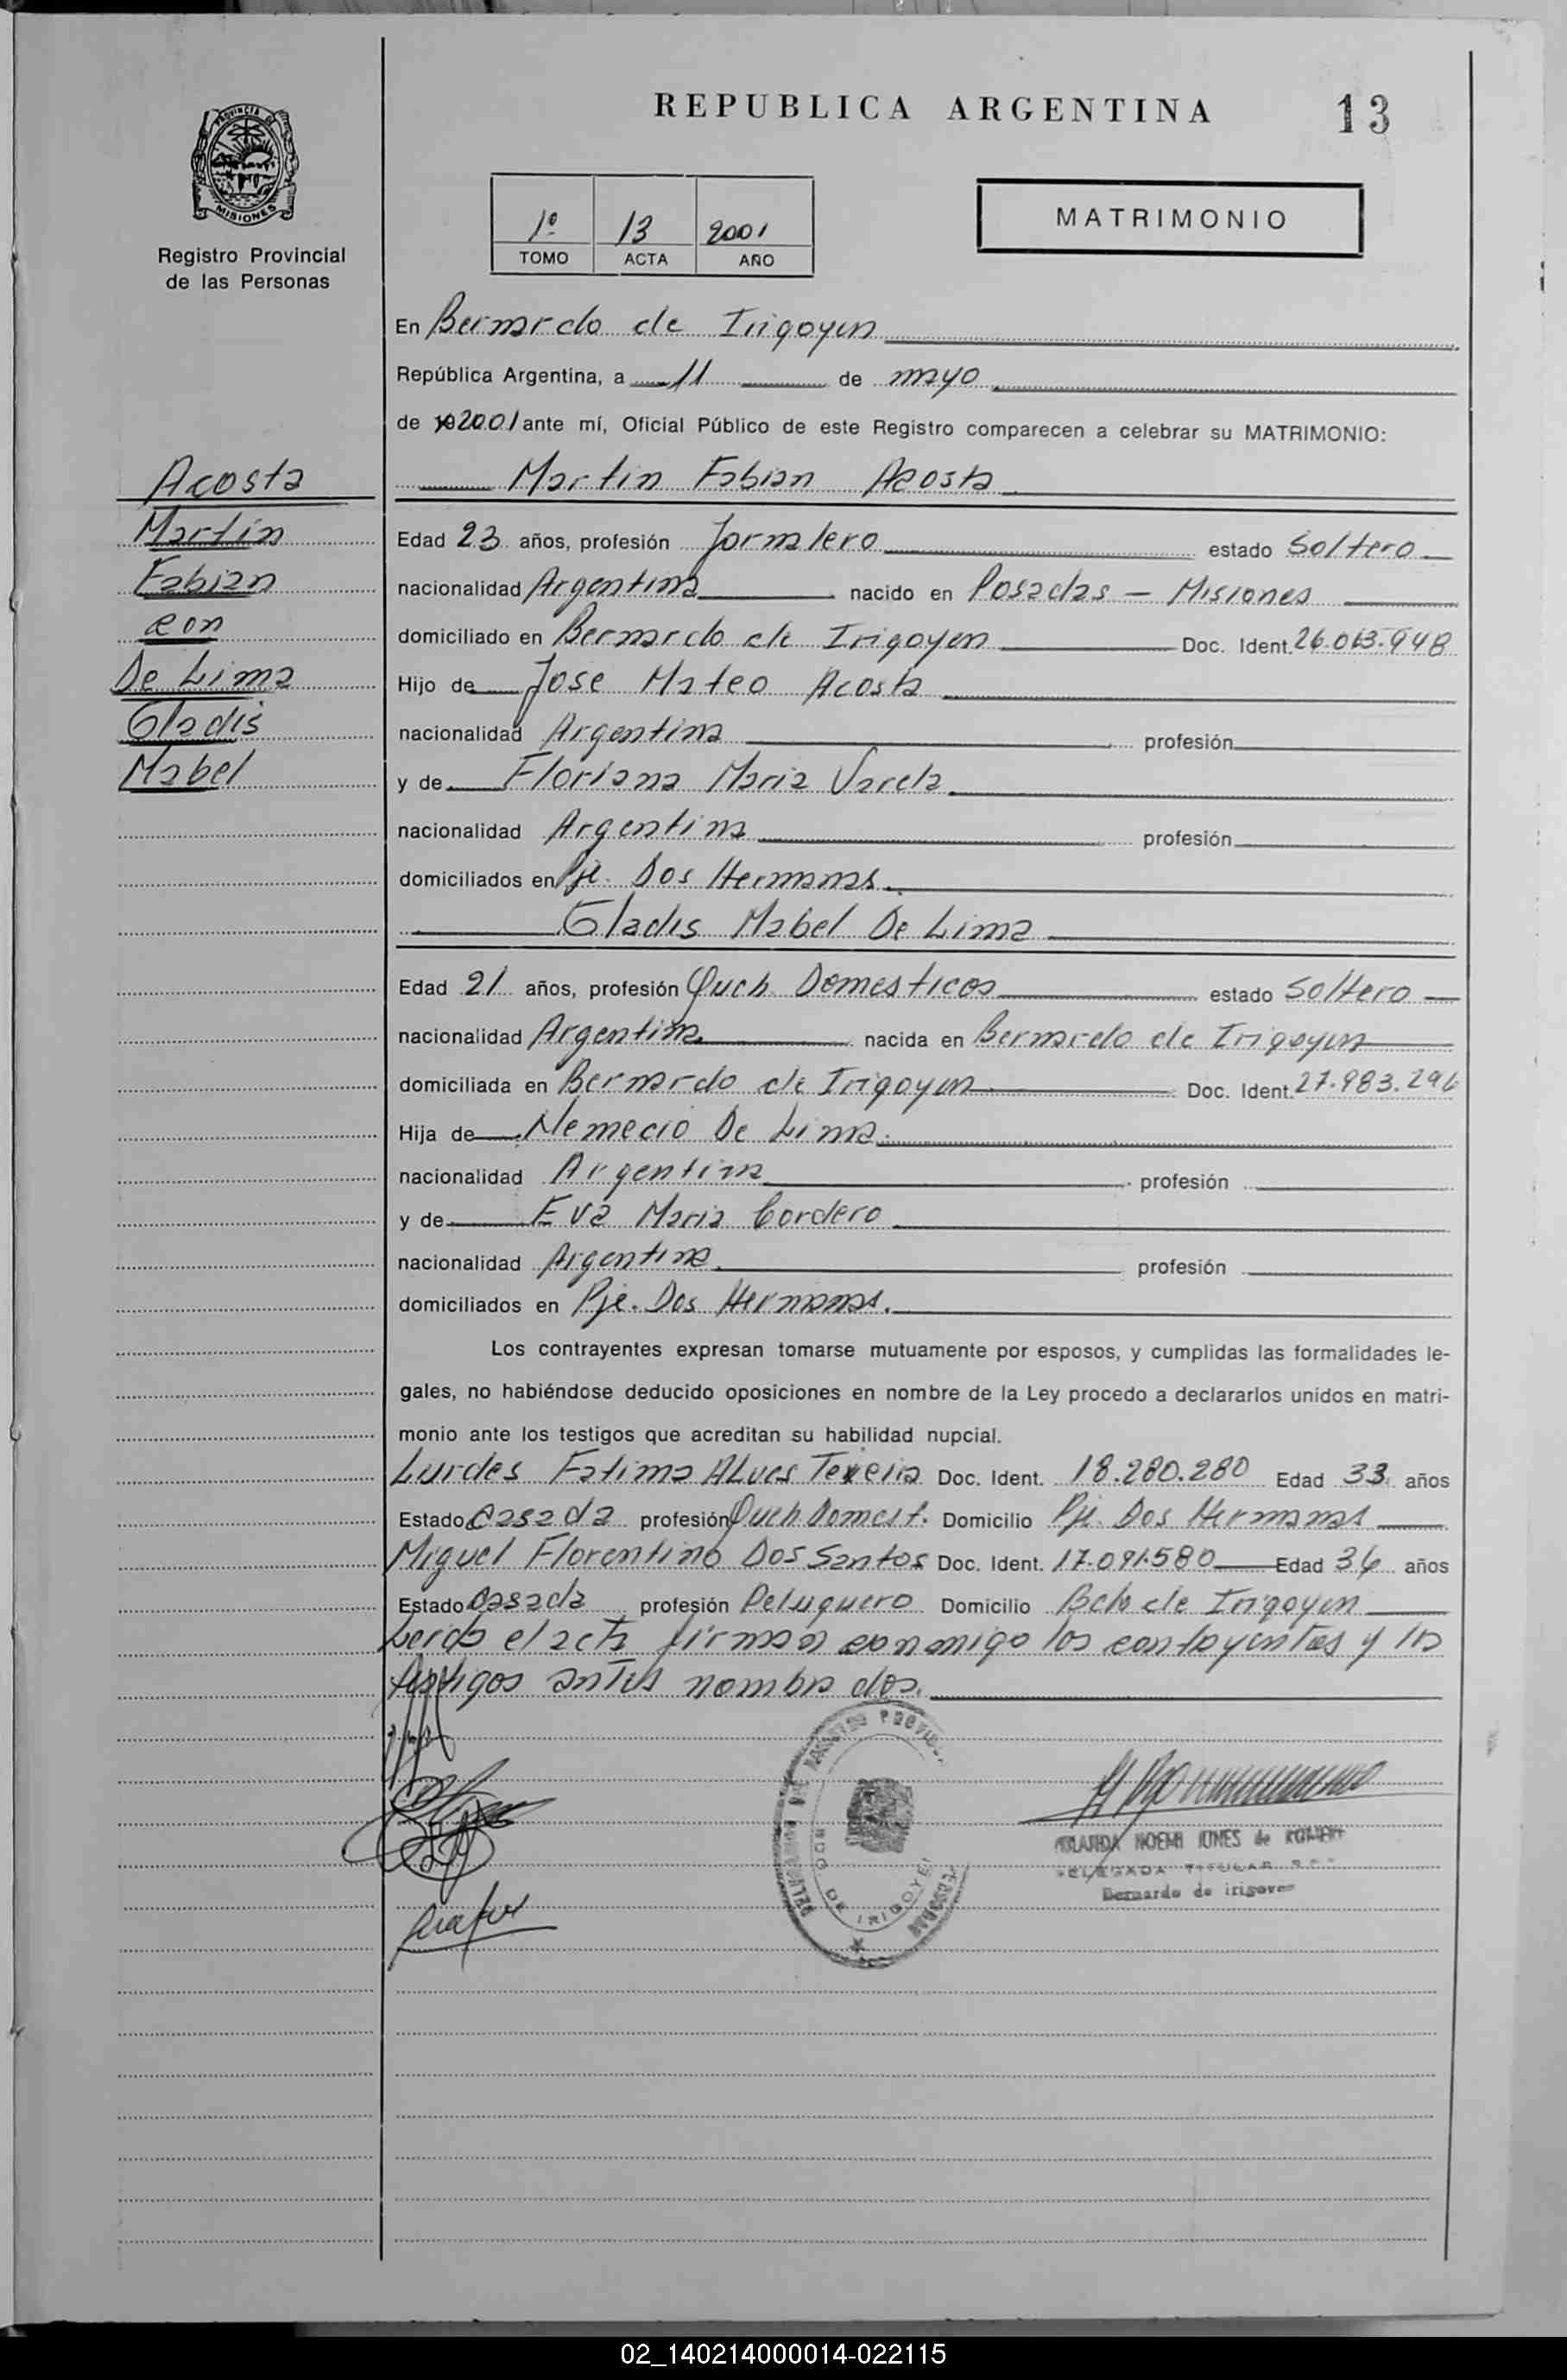 REPUBLICA ARGENTINA
13
PROVINCIA DE
MISIONES
Registro Provincial
de las Personas
1º 13 2001
TOMO ACTA AÑO
MATRIMONIO
En Bernardo de Irigoyen
República Argentina, a 11 de mayo
de 2001 ante mí, Oficial Público de este Registro comparecen a celebrar su MATRIMONIO:
Acosta
Martin Fabian Acosta
Martín
Edad 23 años, profesión Jornalero estado Soltero
Fabian
nacionalidad Argentina nacido en Posadas - Misiones
con
domiciliado en Bernardo de Irigoyen Doc. Ident. 26.063.948
De Lima
Hijo de Jose Mateo Acosta
Gladis
nacionalidad Argentina profesión
Mabel
y de Floriana Maria Varela
nacionalidad Argentina profesión
domiciliados en Pje. Dos Hermanas.
Gladis Mabel De Lima
Edad 21 años, profesión Queh. Domesticos estado Soltero
nacionalidad Argentina nacida en Bernardo de Irigoyen
domiciliada en Bernardo de Irigoyen Doc. Ident. 27.983.296
Hija de Nemecio De Lima.
nacionalidad Argentina profesión
y de Eva Maria Cordero
nacionalidad Argentina profesión
domiciliados en Pje. Dos Hermanas.
Los contrayentes expresan tomarse mutuamente por esposos, y cumplidas las formalidades le-
gales, no habiéndose deducido oposiciones en nombre de la Ley procedo a declararlos unidos en matri-
monio ante los testigos que acreditan su habilidad nupcial.
Lurdes Fatima ALves Texeira Doc. Ident. 18.280.280 Edad 33 años
Estado Casada profesión Queh Domest. Domicilio Pje. Dos Hermanas
Miguel Florentino Dos Santos Doc. Ident. 17.091.580 Edad 36 años
Estado Casada profesión Peluquero Domicilio Bdo de Irigoyen
Leida el acta firman conmigo los contayentes y los
testigos antes nombrados.
NOEMI de
DELEGADA TITULAR
Bernardo de irigoyen
DE IRIGOYEN
02_140214000014-022115